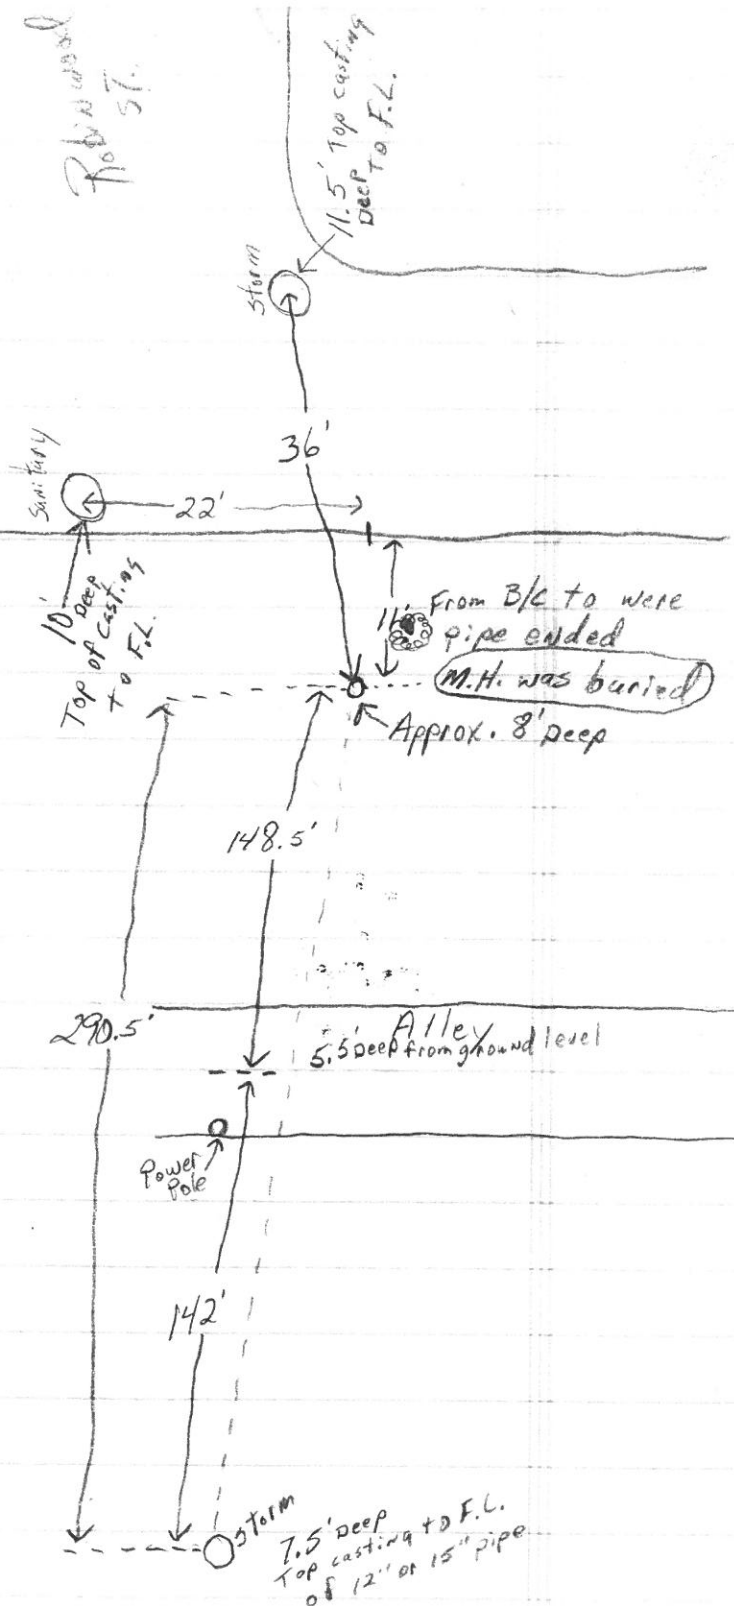 Robinwood
ST.
11.5' Top casting
Deep to F.L.
Storm
36'
Sanitary
22'
10' Deep
Top of casting
to F.L.
11' From B/C to were
pipe ended
M.H. was buried
Approx. 8' Deep
148.5'
290.5'
Alley
5.5' Deep from ground level
Power
Pole
142'
Storm
7.5' Deep
Top casting to F.L.
of 12" or 15" pipe